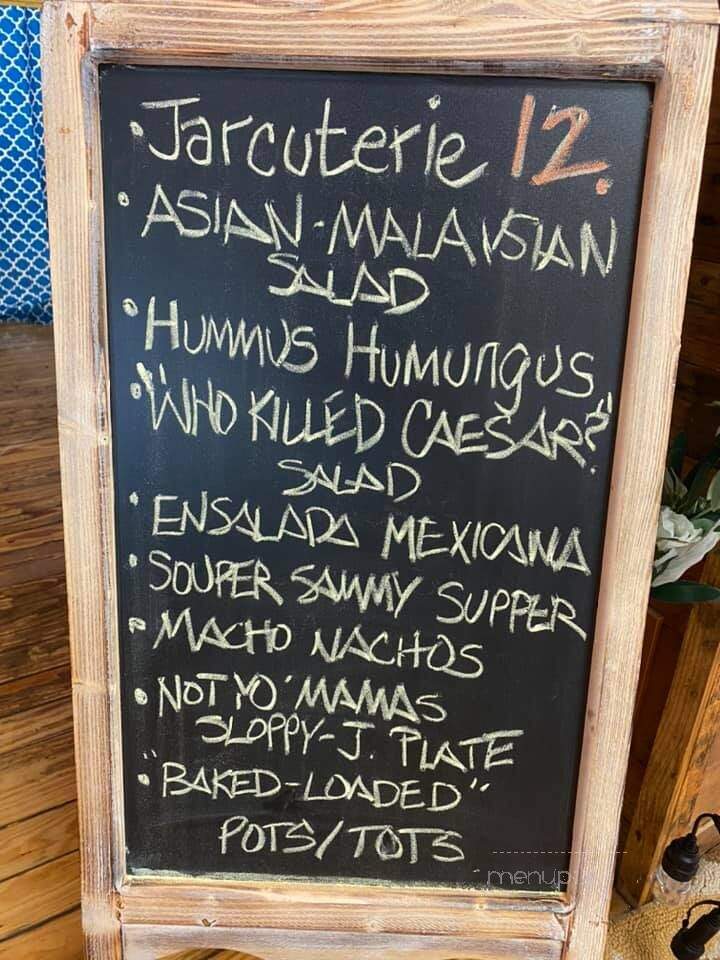 • Jarcuterie 12.
• ASIAN-MALAYSIAN
SALAD
• HUMMUS HUMUNGUS
• "WHO KILLED CAESAR?"
SALAD
• ENSALADA MEXICANA
• SOUPER SAMMY SUPPER
• MACHO NACHOS
• NOT YO' MAMAS
SLOPPY-J. PLATE
• "BAKED-LOADED"
POTS/TOTS
menup